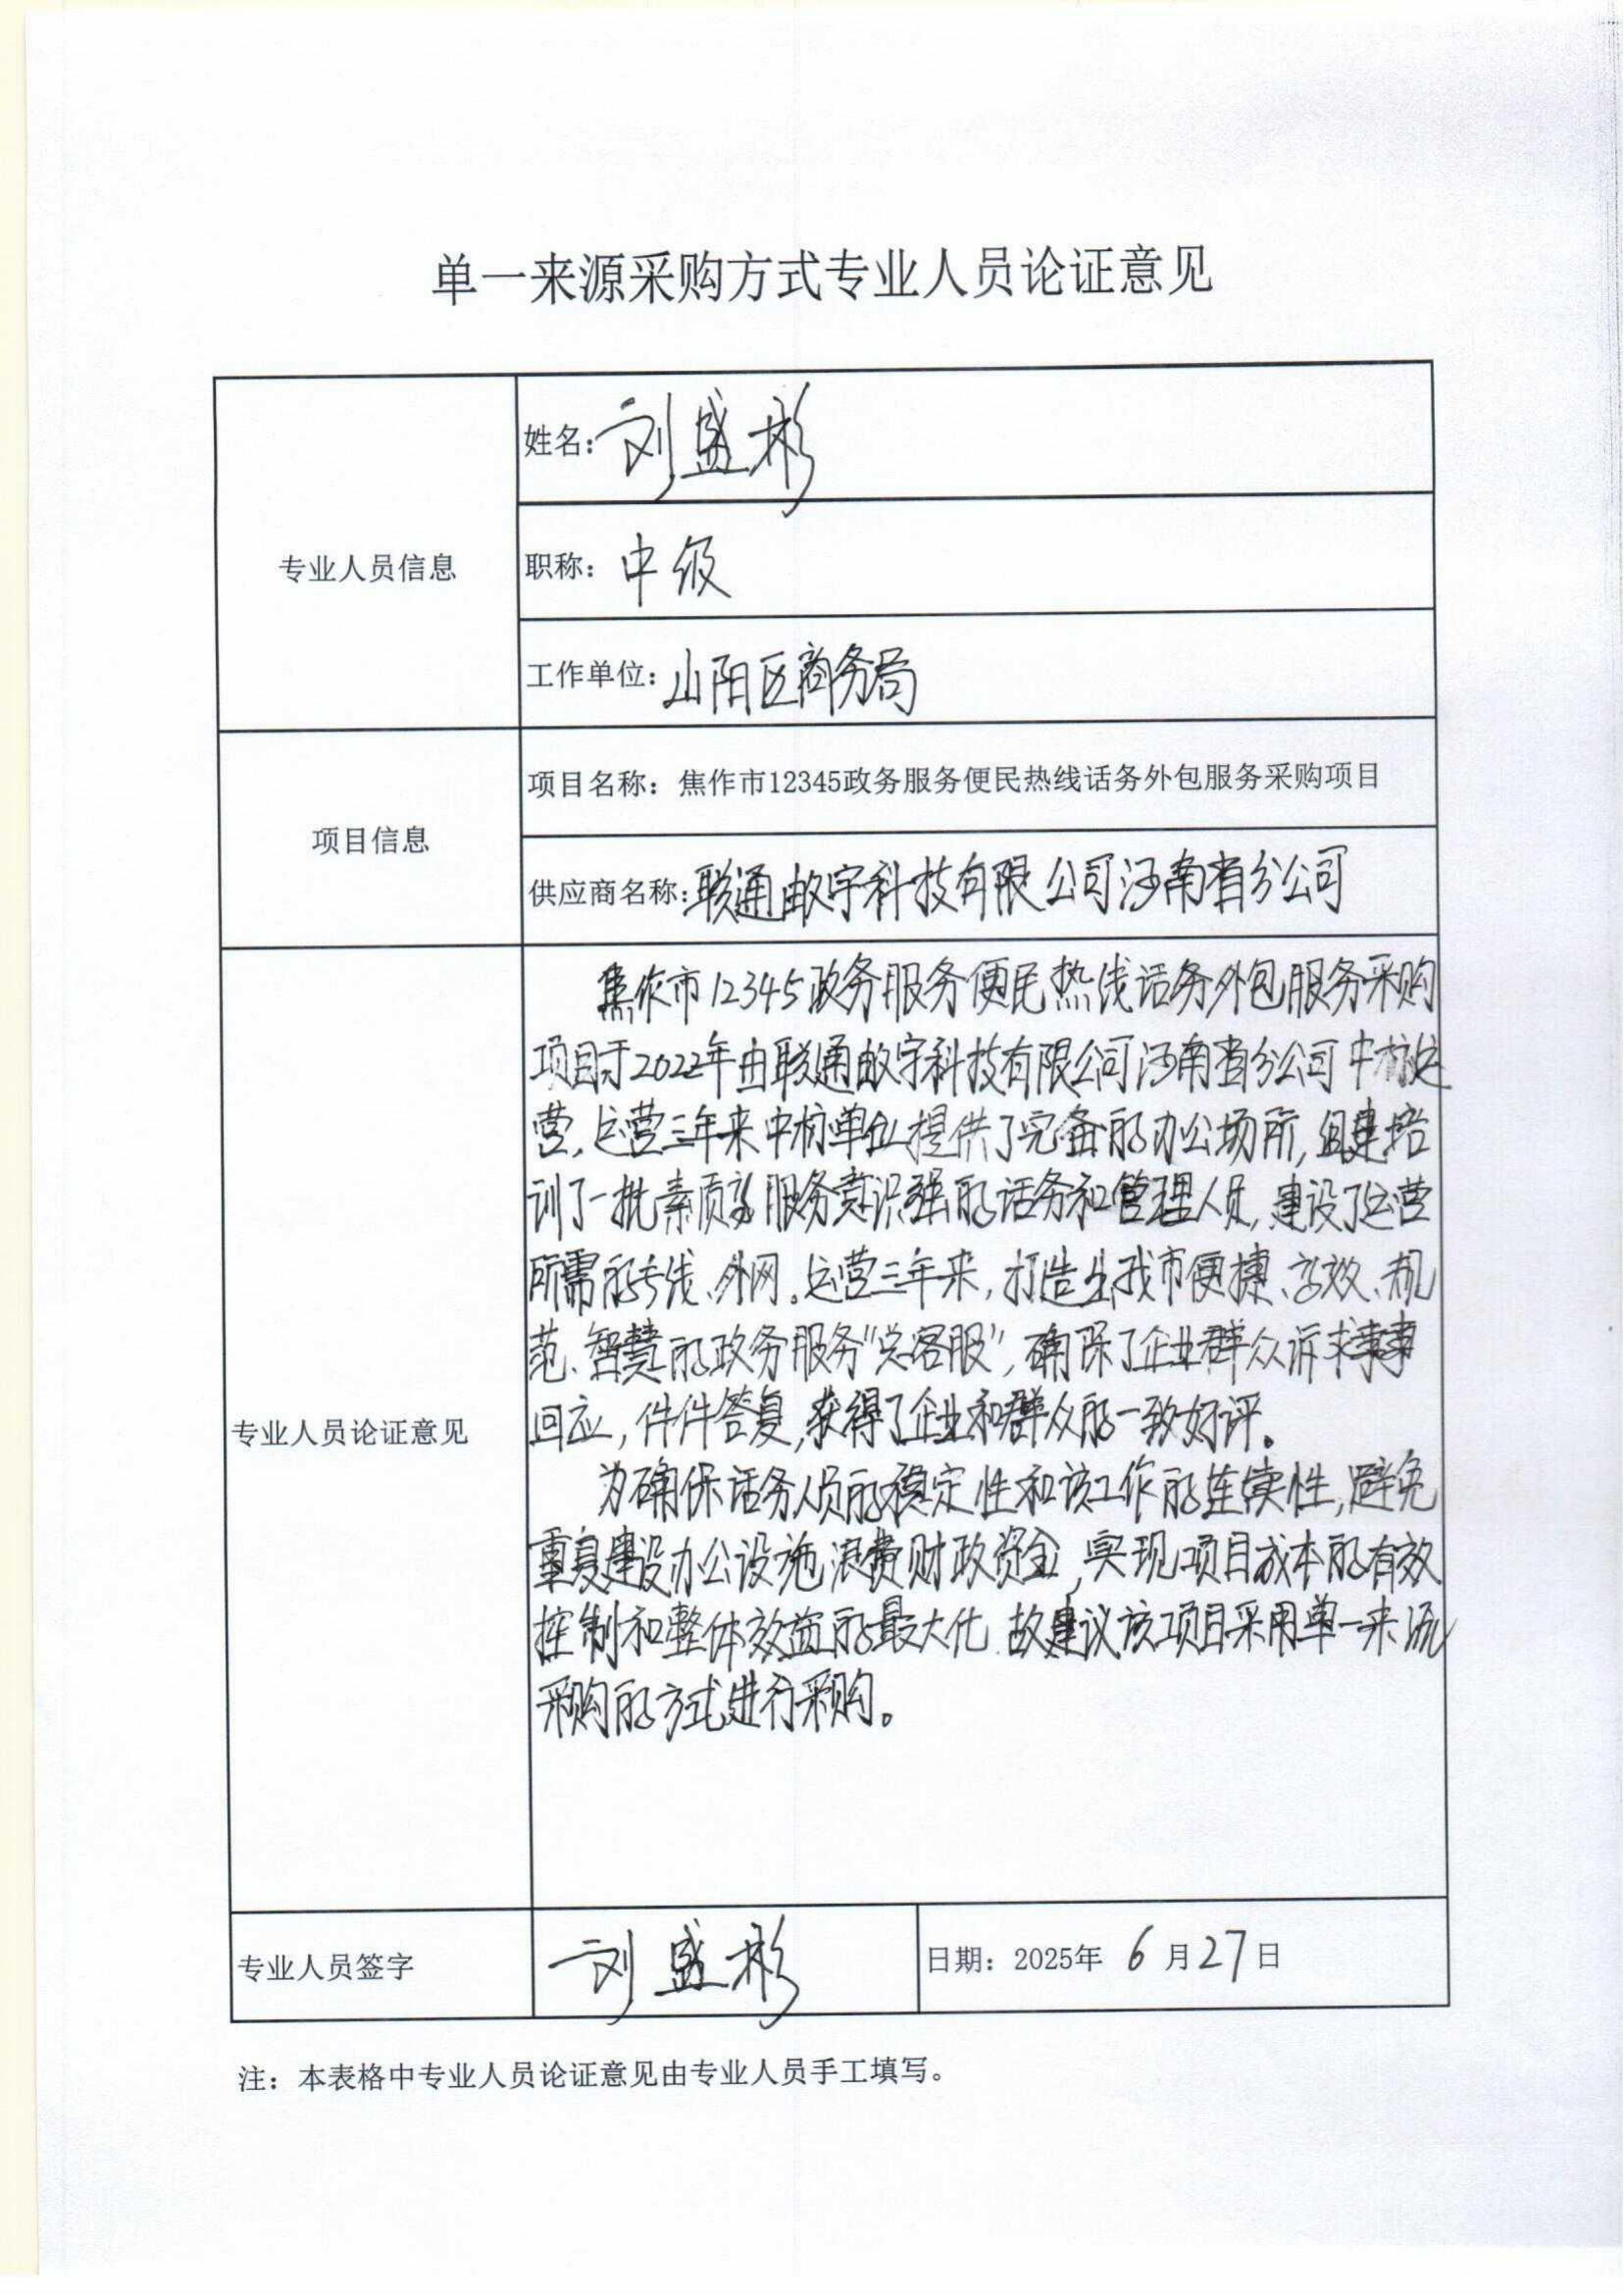 单一来源采购方式专业人员论证意见
专业人员信息
姓名：刘盛彬
职称：中级
工作单位：山阳区商务局
项目信息
项目名称：焦作市12345政务服务便民热线话务外包服务采购项目
供应商名称：联通数字科技有限公司河南省分公司
专业人员论证意见
焦作市12345政务服务便民热线话务外包服务采购
项目于2022年由联通数字科技有限公司河南省分公司中标运
营，运营三年来中标单位提供了完备的办公场所，组建培
训了一批素质高服务意识强的话务和管理人员，建设了运营
所需的专线、外网。运营三年来，打造出我市便捷、高效、规
范、智慧的政务服务“总客服”，确保了企业群众诉求事事
回应，件件答复，获得了企业和群众的一致好评。
为确保话务人员的稳定性和该工作的连续性，避免
重复建设办公设施浪费财政资金，实现项目成本的有效
控制和整体效益的最大化 故建议该项目采用单一来源
采购的方式进行采购。
专业人员签字
刘盛彬
日期：2025年 6 月27日
注：本表格中专业人员论证意见由专业人员手工填写。